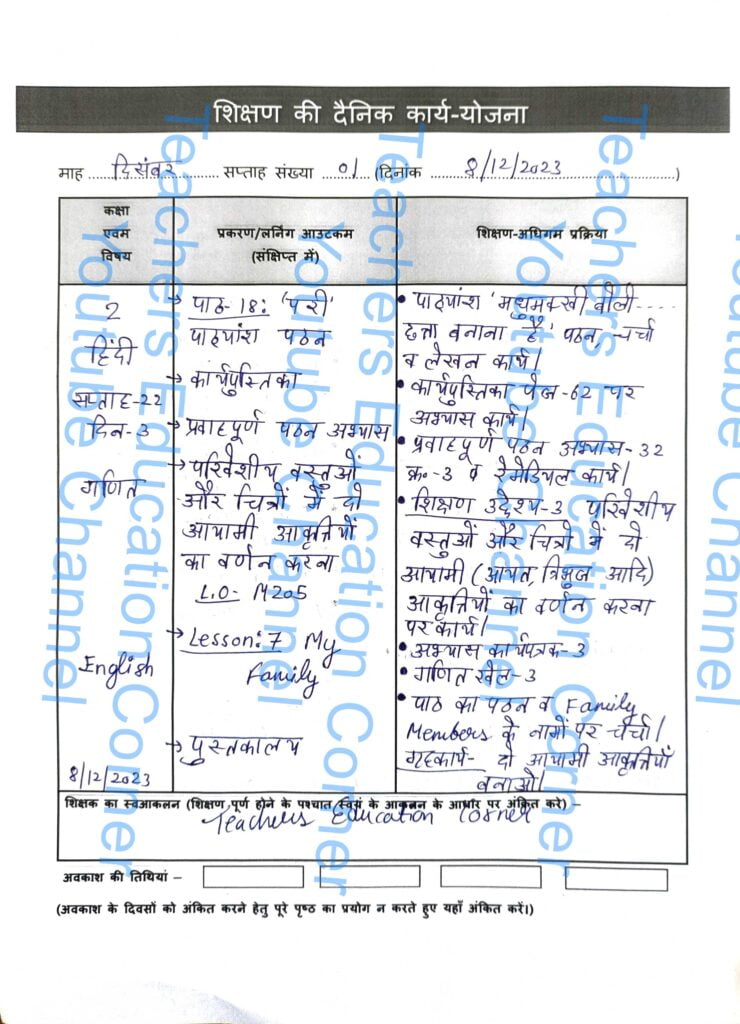 शिक्षण की दैनिक कार्य-योजना
माह ....दिसंबर.... सप्ताह संख्या ....01 (दिनांक ....8/12/2023....)
कक्षा
एवम
विषय
प्रकरण/लर्निंग आउटकम
(संक्षिप्त में)
शिक्षण-अधिगम प्रक्रिया
2
हिंदी
सप्ताह-22
दिन-3
गणित
English
8/12/2023
→ पाठ-18: 'परी'
पाठ्यांश पठन
→ कार्यपुस्तिका
→ प्रवाहपूर्ण पठन अभ्यास
→ परिवेशीय वस्तुओं
और चित्रों में दो
आयामी आकृत्तियों
का वर्णन करना
L.O- M205
→ Lesson: 7 My
Family
→ पुस्तकालय
• पाठ्यांश 'मधुमक्खी बोली....
छत्ता बनाना है' पठन, चर्चा
व लेखन कार्य।
• कार्यपुस्तिका पेज-62 पर
अभ्यास कार्य।
• प्रवाहपूर्ण पठन अभ्यास-32
क्र.-3 व रेमेडियल कार्य।
• शिक्षण उद्देश्य-3 परिवेशीय
वस्तुओं और चित्रों में दो
आयामी (आयत, त्रिभुज आदि)
आकृत्तियों का वर्णन करना
पर कार्य।
• अभ्यास कार्यपत्रक-3
• गणित खेल-3
• पाठ का पठन व Family
Members के नामों पर चर्चा।
गृहकार्य- दो आयामी आकृत्तियाँ
बनाओ।
शिक्षक का स्वआकलन (शिक्षण पूर्ण होने के पश्चात स्वयं के आकलन के आधार पर अंकित करे) –
Teachers Education Corner
अवकाश की तिथियां –
(अवकाश के दिवसों को अंकित करने हेतु पूरे पृष्ठ का प्रयोग न करते हुए यहाँ अंकित करें।)
Teachers Education Corner
Youtube Channel
Teachers Education Corner
Youtube Channel
Teachers Education Corner
Youtube Channel